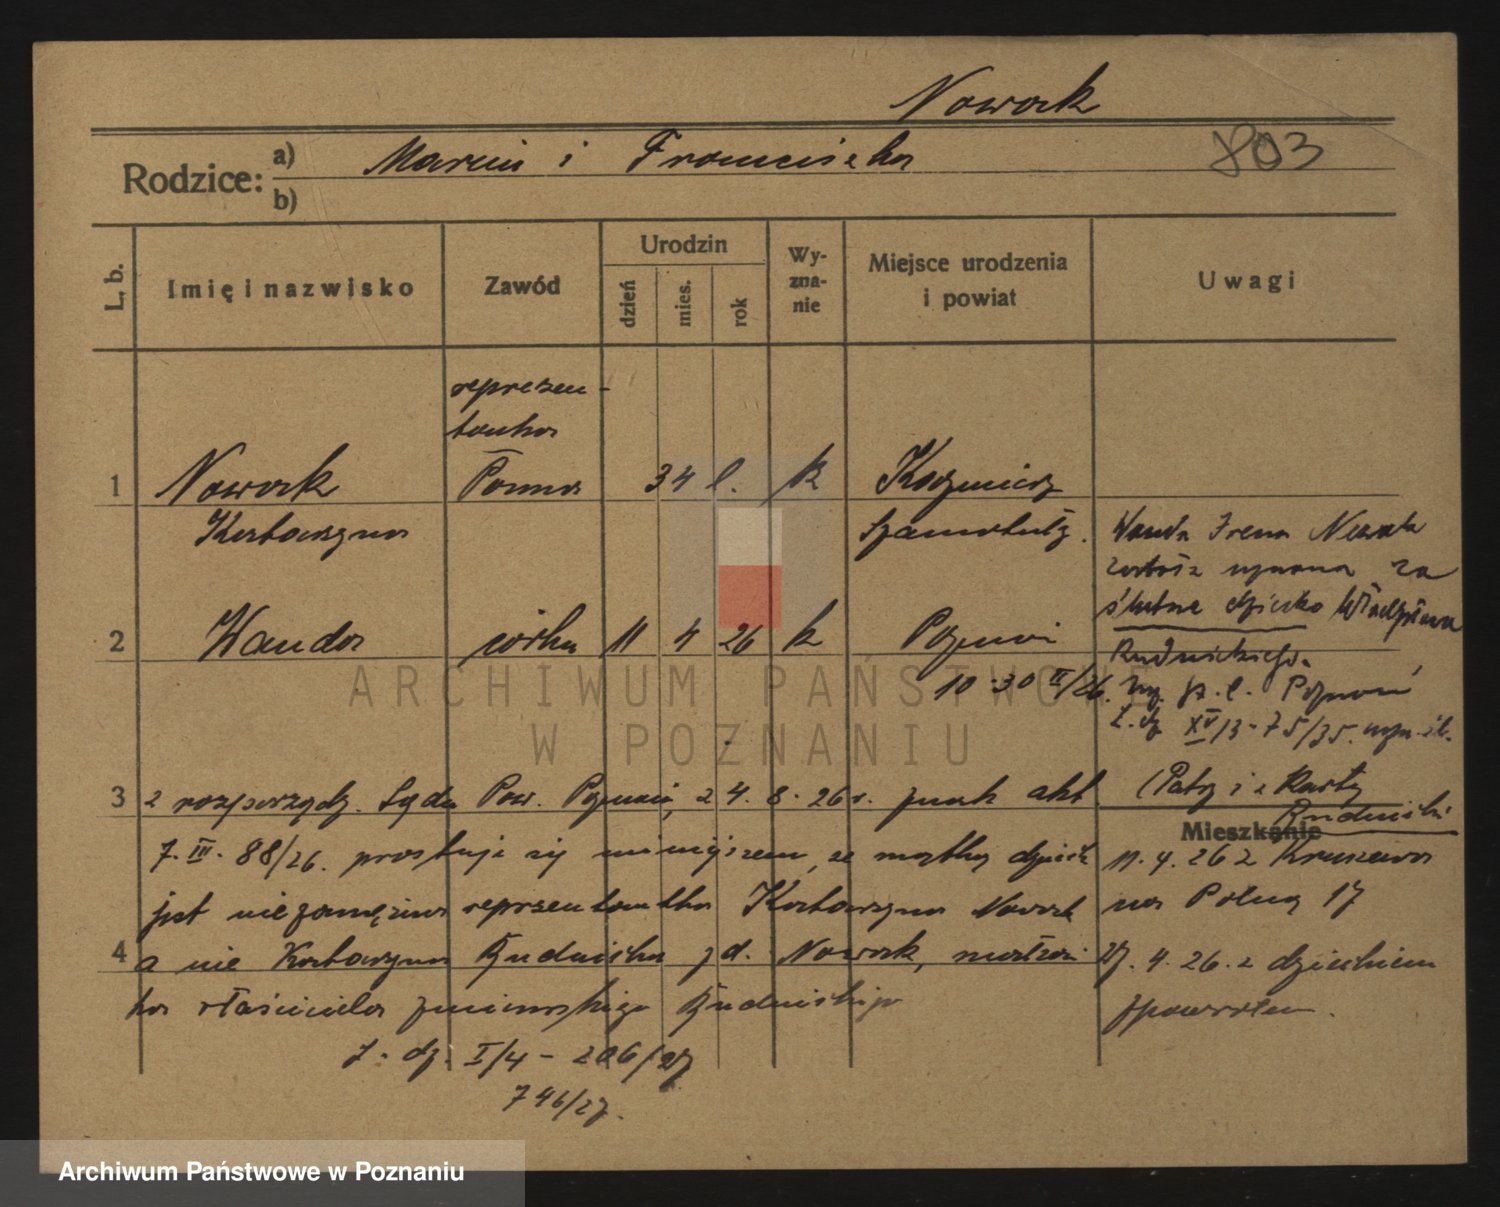 Nowak
Rodzice: a) Marcin i Franciszka 803
b)
L. b. Imię i nazwisko Zawód Urodzin dzień mies. rok Wyznanie Miejsce urodzenia i powiat Uwagi
reprezen-
tantka
1 Nowak Panna 34 l. k Kaźmierz
Katarzyna Szamotuły. Wanda Irena Nowak
została uznana za
ślubne dziecko Władysława
2 Wanda córka 11 4 26 k Poznań
Rudnickiego.
10 30 II/26. Poznań
L. dz XV/13-75/35.
3 z rozporządz. Sądu Pow. Poznań, z 4. 8. 26 r. znak akt. (Patrz i z Karty
Rudnicki
Mieszkanie
7. III. 88/26. prostuje się niniejszem, że matką dziecka 11. 4. 26 z Kruszewa
jest niezamężna reprezentantka Katarzyna Nowak na Polną 17
4 a nie Katarzyna Rudnicka zd. Nowak, małżon 27. 4. 26. z dzieckiem
ka właściciela Rudnickiego zpowrotem.
L. dz. I/4 - 206/27
746/27.
ARCHIWUM PAŃSTWOWE
W POZNANIU
Archiwum Państwowe w Poznaniu